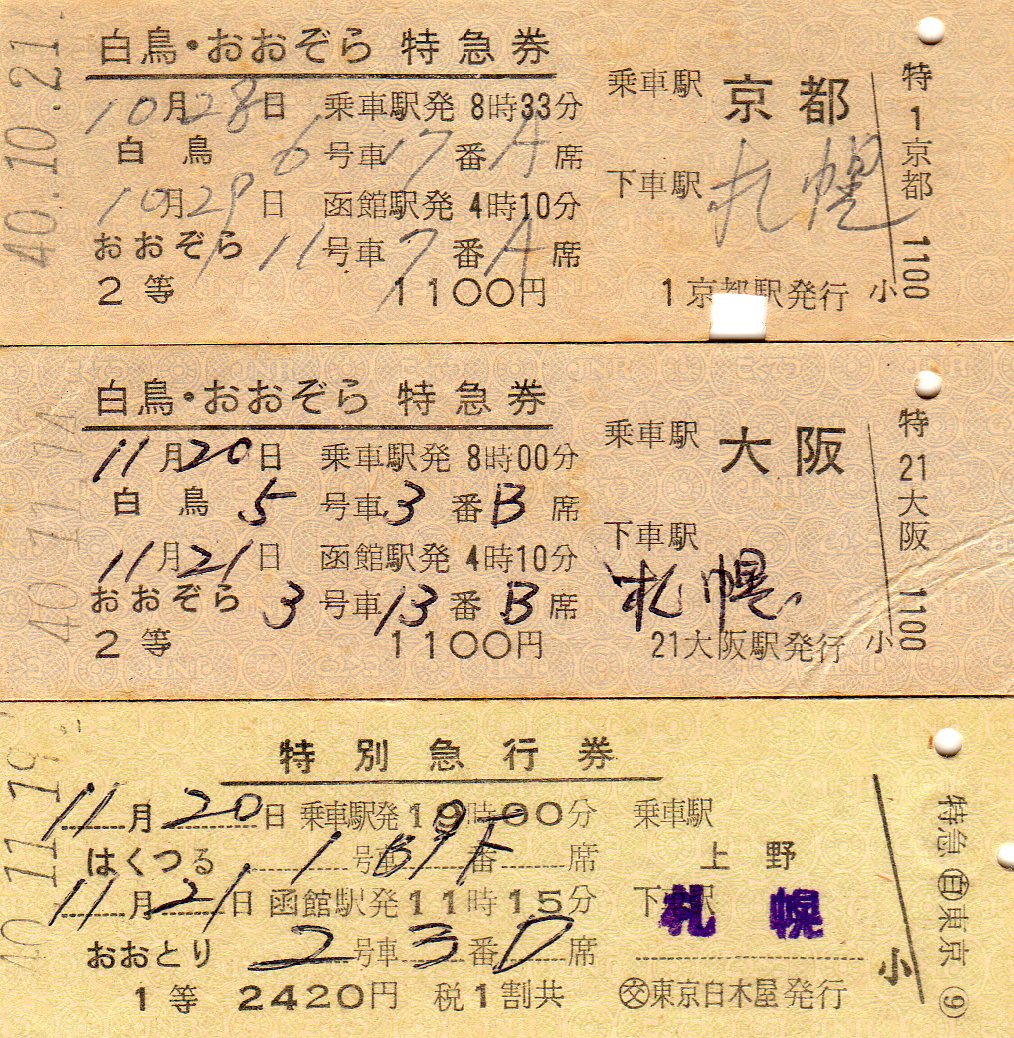 40.10.21.
白鳥・おおぞら 特急券
10月28日 乗車駅発 8時33分
白鳥 6号車17番A席
10月29日 函館駅発 4時10分
おおぞら 11号車7番A席
2等 1100円
乗車駅 京都
下車駅 札幌
1京都駅発行 小
特1京都 1100
40.11.14
白鳥・おおぞら 特急券
11月20日 乗車駅発 8時00分
白鳥 5号車3番B席
11月21日 函館駅発 4時10分
おおぞら 3号車13番B席
2等 1100円
乗車駅 大阪
下車駅 札幌
21大阪駅発行 小
特21大阪 1100
40.11.19
特別急行券
11月20日 乗車駅発19時00分
はくつる 1号車B9下番席
11月21日 函館駅発11時15分
おおとり 2号車3番D席
1等 2420円 税1割共
乗車駅
上野
下車駅
札幌
㊋東京白木屋発行
小
特急㊐東京⑨